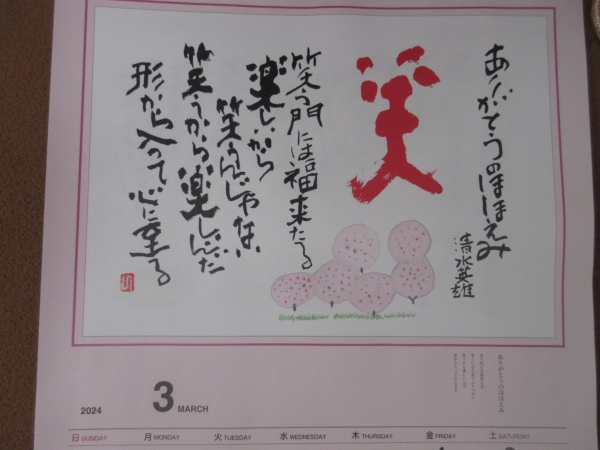 ありがとうのほほえみ
清水英雄
笑
笑う門には福来たる
楽しいから
笑うんじゃない
笑うから楽しいんだ
形から入って心に至る
ありがとうのほほえみ
2024
3 MARCH
日 SUNDAY
月 MONDAY
火 TUESDAY
水 WEDNESDAY
木 THURSDAY
金 FRIDAY
土 SATURDAY